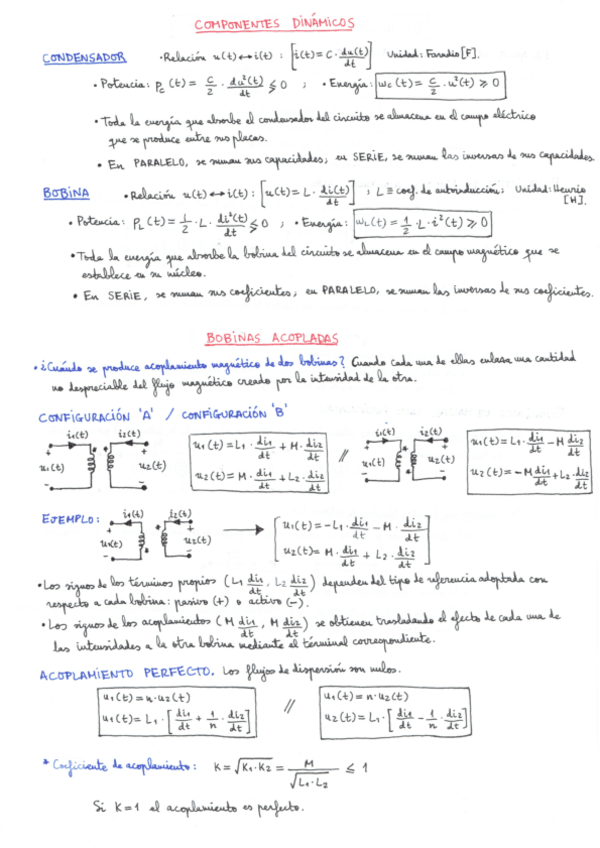 COMPONENTES DINÁMICOS
CONDENSADOR · Relación u(t)↔i(t) : [i(t) = C · du(t)/dt] Unidad: Faradio [F].
· Potencia: Pc(t) = C/2 · du²(t)/dt ≶ 0 ; · Energía: wc(t) = C/2 · u²(t) ⩾ 0
· Toda la energía que absorbe el condensador del circuito se almacena en el campo eléctrico
que se produce entre sus placas.
· En PARALELO, se suman sus capacidades; en SERIE, se suman las inversas de sus capacidades.
BOBINA · Relación u(t)↔i(t) : [u(t) = L · di(t)/dt] ; L ≡ coef. de autoinducción; Unidad: Henrio [H].
· Potencia: PL(t) = 1/2 · L · di²(t)/dt ≶ 0 ; · Energía: wL(t) = 1/2 · L · i²(t) ⩾ 0
· Toda la energía que absorbe la bobina del circuito se almacena en el campo magnético que se
establece en su núcleo.
· En SERIE, se suman sus coeficientes; en PARALELO, se suman las inversas de sus coeficientes.
BOBINAS ACOPLADAS
· ¿Cuándo se produce acoplamiento magnético de dos bobinas? Cuando cada una de ellas enlasa una cantidad
no despreciable del flujo magnético creado por la intensidad de la otra.
CONFIGURACIÓN 'A' / CONFIGURACIÓN 'B'
i1(t) i2(t) u1(t) u2(t)
u1(t) = L1 · di1/dt + M · di2/dt
u2(t) = M · di1/dt + L2 · di2/dt
//
i1(t) i2(t) u1(t) u2(t)
u1(t) = L1 · di1/dt - M di2/dt
u2(t) = -M di1/dt + L2 · di2/dt
EJEMPLO: i1(t) i2(t) u1(t) u2(t)
u1(t) = -L1 · di1/dt - M · di2/dt
u2(t) = M · di1/dt + L2 · di2/dt
· Los signos de los términos propios (L1 di1/dt, L2 di2/dt) dependen del tipo de referencia adoptada con
respecto a cada bobina: pasivo (+) o activo (-).
· Los signos de los acoplamientos (M di1/dt, M di2/dt) se obtienen trasladando el efecto de cada una de
las intensidades a la otra bobina mediante el términal correspondiente.
ACOPLAMIENTO PERFECTO. Los flujos de dispersión son nulos.
u1(t) = n · u2(t)
u1(t) = L1 · [di1/dt + 1/n · di2/dt]
//
u1(t) = n · u2(t)
u2(t) = L1 · [di1/dt - 1/n · di2/dt]
* Coeficiente de acoplamiento: K = √(K1·K2) = M/√(L1·L2) ⩽ 1
Si K=1 el acoplamiento es perfecto.